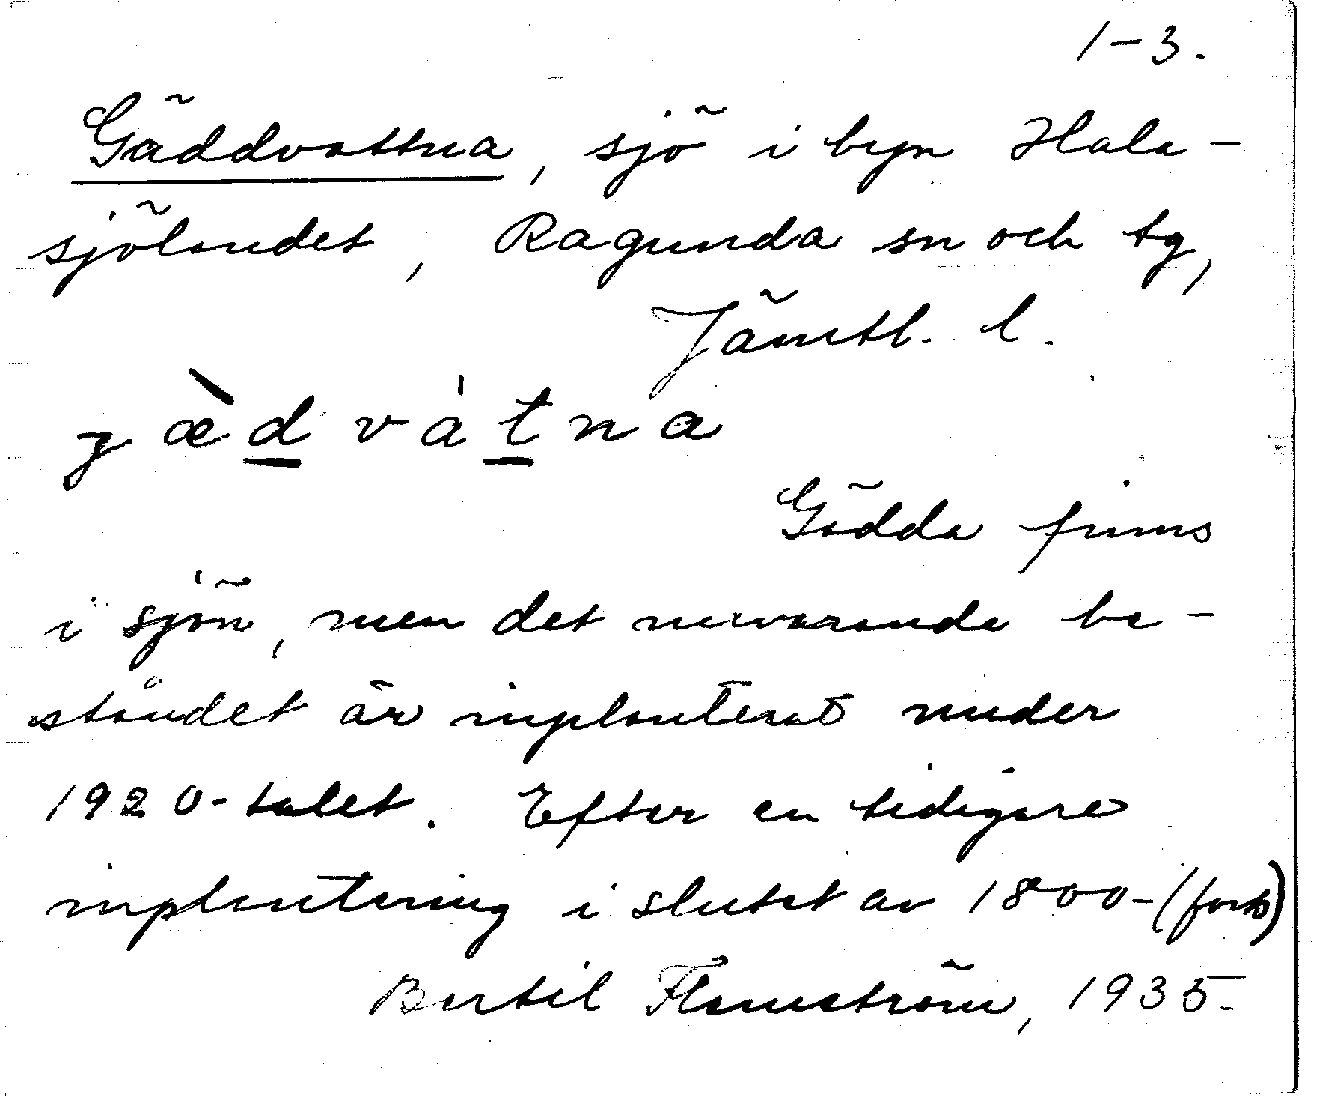 1-3.
Gäddvattna, sjö i byn Hala-
sjölandet, Ragunda sn och tg,
Jämtl. l.
gæ̀dvátna
Gädda finns
i sjön, men det nuvarande be-
ståndet är inplanterat under
1920-talet. Efter en tidigare
inplantering i slutet av 1800-(forts)
Bertil Flemström, 1935.